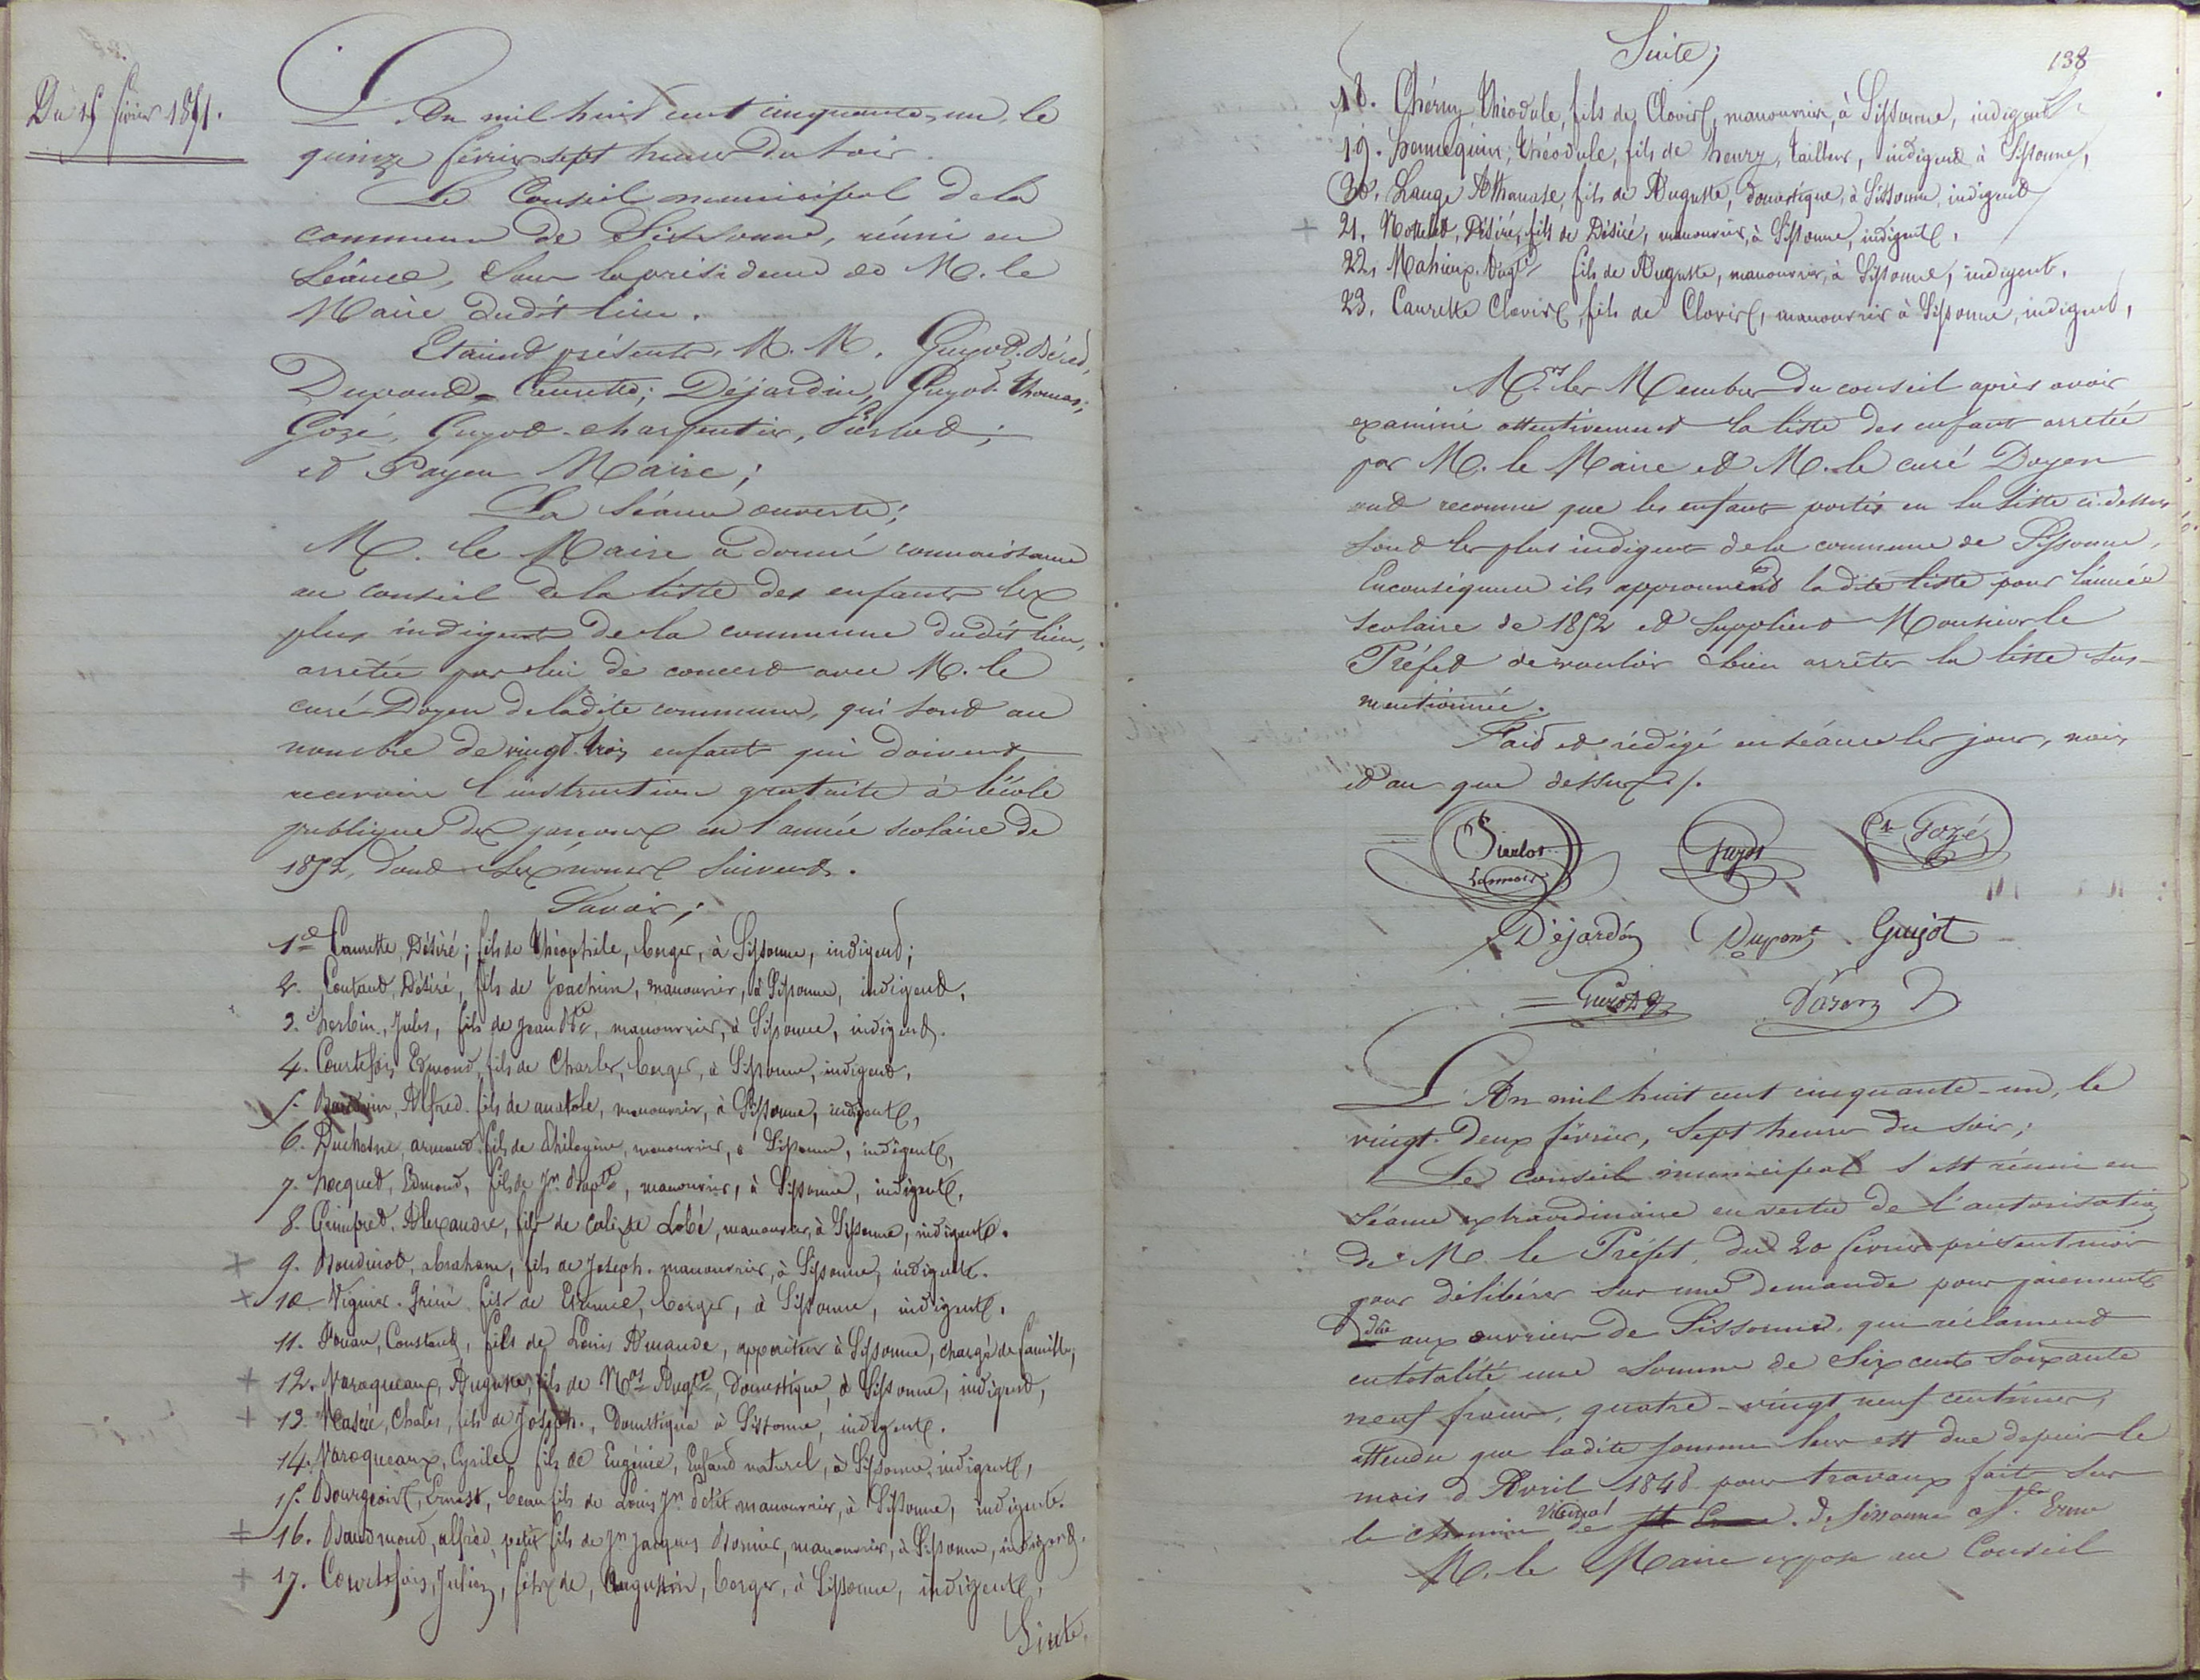 Du 15 février 1851.
L'An mil huit cent cinquante-un, le
quinze février sept heures du soir.
Le Conseil municipal de la
commune de Sissonne, réuni en
séance, sous la présidence de M. le
Maire dudit lieu.
Etaient présents, M. M. Guyot-Béred,
Dupont-Caurette; Déjardin, Guyot-Thomas;
Gozé, Guyot-charpentier, Pierlot;
et Payen Maire;
La séance ouverte;
M. le Maire a donné connaissance
au conseil de la liste des enfants les
plus indigents de la commune dudit lieu,
arrêtée par lui de concert avec M. le
curé Doyen de ladite commune, qui sont au
nombre de vingt-trois enfants qui doivent
recevoir l'instruction gratuite à l'école
publique des garçons en l'année scolaire de
1852, dont les noms suivent.
Savoir;
1º Caurette, Désiré; fils de Théophile, berger, à Sissonne, indigent;
2. Coutant, Désiré, fils de Joachim, manouvrier, à Sissonne, indigent,
3. herbin, Jules, fils de Jean Bte, manouvrier, à Sissonne, indigent.
4. Courtefois Edmond, fils de Charles, berger, à Sissonne, indigent,
5. Alfred, fils de anatole, manouvrier, à Sissonne, indigent,
6. Duchesne, armand, fils de Philogène, manouvrier, à Sissonne, indigent,
7. hocquet, Edmond, fils de Jn Bapte, manouvrier, à Sissonne, indigent,
8. Alexandre, fils de Calixte Lobé, manouvrier, à Sissonne, indigent.
+ 9. Boudinot, abraham, fils de Joseph, manouvrier, à Sissonne, indigent.
+ 10. Vignier fils de berger, à Sissonne, indigent.
11. Constant, fils de Louis Amande, appariteur à Sissonne, chargé de famille,
+ 12. Varoqueaux, Auguste, fils de Augte, domestique, à Sissonne, indigent,
+ 13. Chales, fils de Joseph, Domestique à Sissonne, indigent.
14. Varoqueaux, Cyrile, fils de Eugénie, Enfant naturel, à Sissonne, indigent,
15. Bourgeois, Ernest, beau fils de Louis Jn Petit manouvrier, à Sissonne, indigent.
+ 16. Baudmont, alfred, petit fils de Jn Jacques Bonnier, manouvrier, à Sissonne, indigent.
+ 17. Courtefois, Julien, fils de, Augustin, berger, à Sissonne, indigent,
Suite,
Suite;
138
18. Théodule, fils de Clovis, manouvrier, à Sissonne, indigent
19. hennequin, Théodule, fils de henry, tailleur, indigent à Sissonne,
20. Lange Athanase, fils de Auguste, domestique, à Sissonne, indigent
+ 21. Nottelet, Désiré, fils de Désiré, manouvrier, à Sissonne, indigent,
22. Mahieux Augte fils de Auguste, manouvrier, à Sissonne, indigent,
23. Caurette Clovis, fils de Clovis, manouvrier à Sissonne, indigent,
Mrs les Membres du conseil après avoir
examiné attentivement la liste des enfants arretée
par M. le Maire et M. le curé Doyen
ont reconnu que les enfants portés en la liste ci-dessus
sont les plus indigents de la commune de Sissonne,
Enconséquence ils approuvent ladite liste pour l'année
scolaire de 1852 et supplient Monsieur le
Préfet de vouloir bien arrêter la liste sus-
mentionnée.
Fait et rédigé en séance les jour, mois,
et an que dessus ./.
Pierlot Lamoir Guyot Gozé
Déjardin Dupont Guyot
Guyot Payen
L'An mil huit cent cinquante-un, le
vingt-deux février, Sept heures du soir;
Le Conseil municipal s'est réuni en
séance extraordinaire en vertu de l'autorisation
de M. le Préfet, du 20 février présent mois
pour délibérer sur une demande pour paiements
dûs aux ouvriers de Sissonne, qui réclament
en totalité une somme de Six cents soixante
neuf francs, quatre-vingt neuf centimes,
attendu que ladite somme leur est due depuis le
mois d'Avril 1848 pour travaux faits sur
le chemin vicinal de Sissonne à St. Erme
M. le Maire expose au Conseil